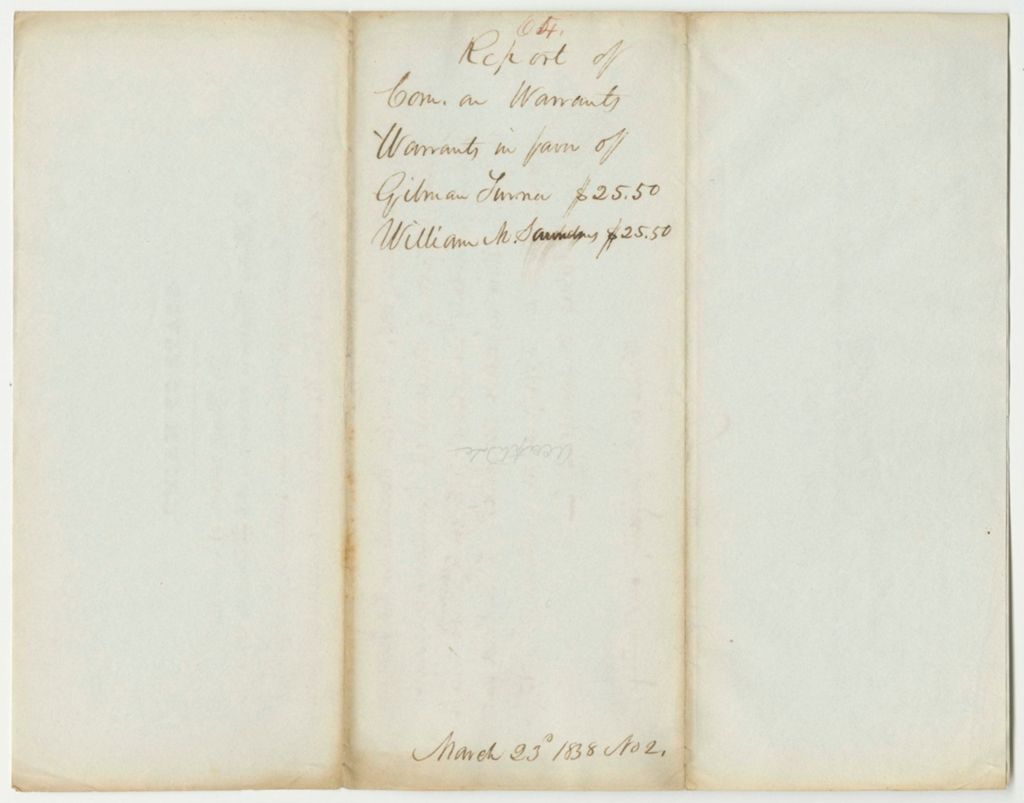 64.
Report of
Com. on Warrants
Warrants in favor of
Gilman Turner $25.50
William M. Saunders $25.50
March 23d 1838 No 2.